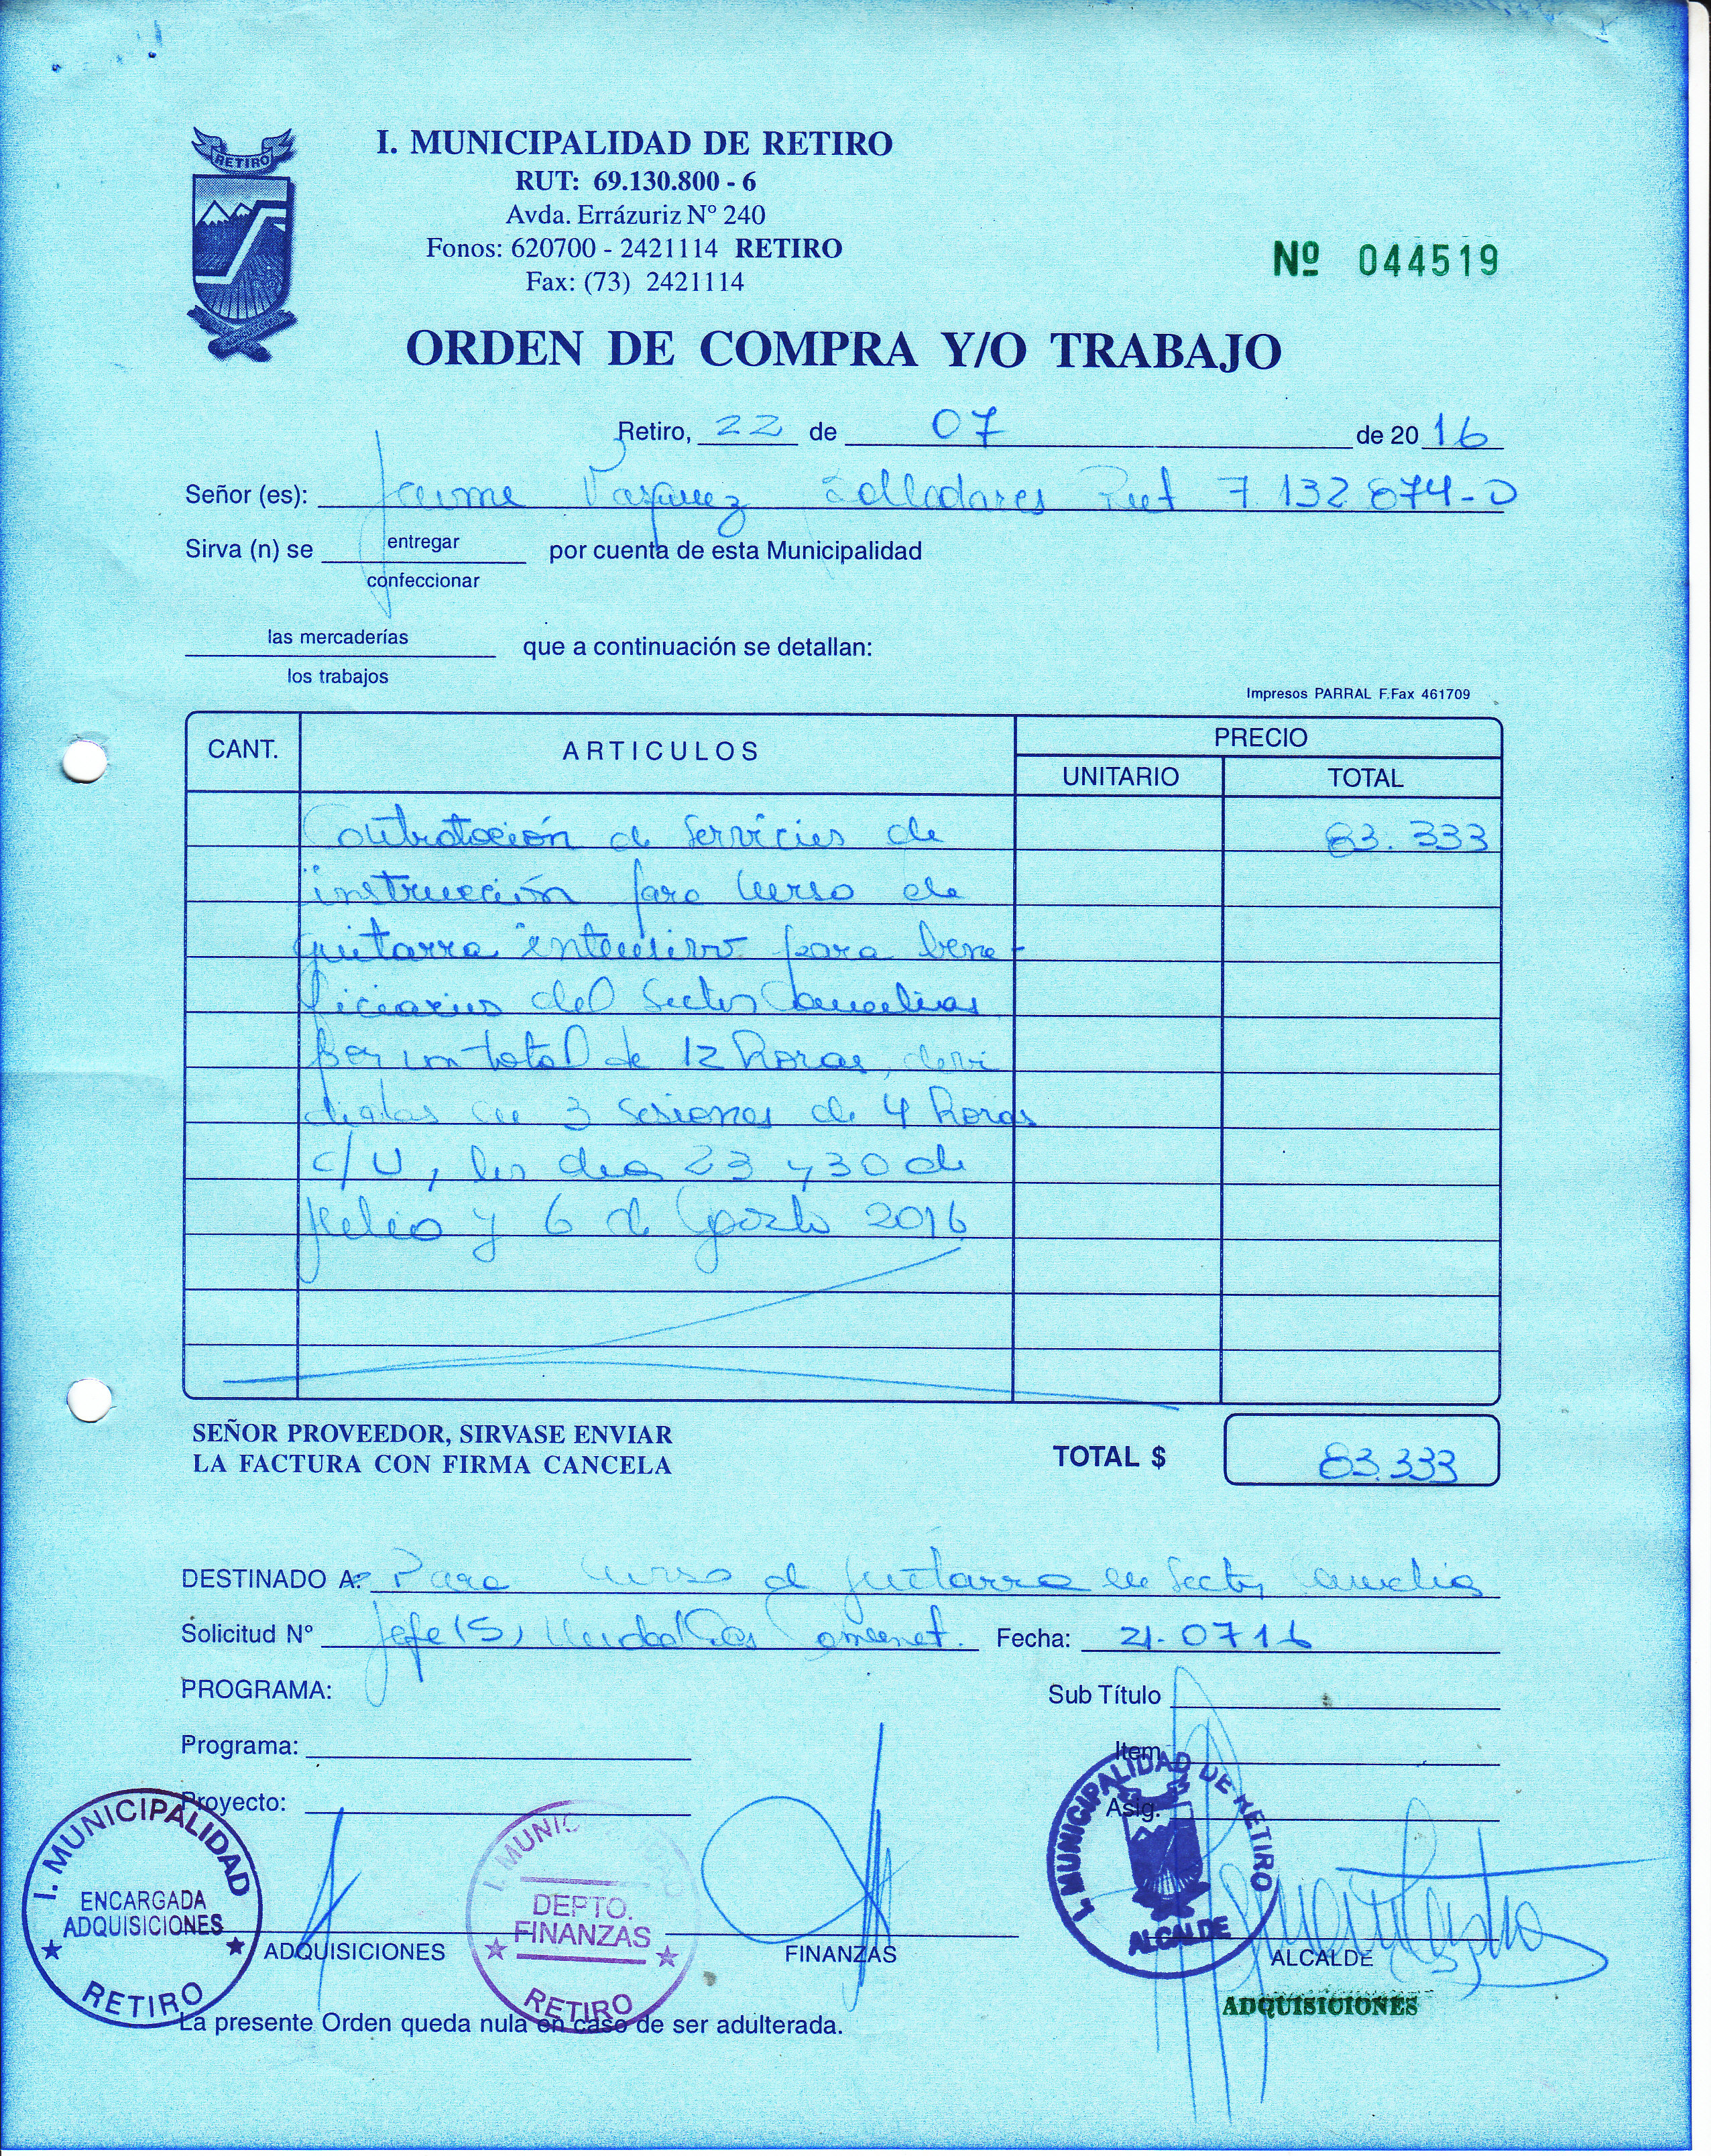 RETIRO
I. MUNICIPALIDAD DE RETIRO
RUT: 69.130.800 - 6
Avda. Errázuriz Nº 240
Fonos: 620700 - 2421114 RETIRO
Fax: (73) 2421114
Nº 044519
ORDEN DE COMPRA Y/O TRABAJO
Retiro, 22 de 07 de 2016
Señor (es): Jaime Vasquez Valladares Rut 7.132.874-0
Sirva (n) se entregar por cuenta de esta Municipalidad
confeccionar
las mercaderías que a continuación se detallan:
los trabajos
Impresos PARRAL F.Fax 461709
CANT. ARTICULOS PRECIO
UNITARIO TOTAL
Contratación de Servicios de 83.333
instrucción para Curso de
guitarra intensivo para bene-
ficiarios del Sector Camelias
por un total de 12 horas, divi
didas en 3 sesiones de 4 horas
c/u, los dias 23 y 30 de
Julio y 6 de Agosto 2016
SEÑOR PROVEEDOR, SIRVASE ENVIAR
LA FACTURA CON FIRMA CANCELA
TOTAL $ 83.333
DESTINADO A: Para Curso de guitarra en Sector Camelias
Solicitud Nº Jefe (S) Unidad Fecha: 21-07 16
PROGRAMA: Sub Título
Programa: Item
Proyecto: Asig.
I. MUNICIPALIDAD
ENCARGADA
ADQUISICIONES
RETIRO
I. MUNIC
DEPTO.
FINANZAS
RETIRO
I. MUNICIPALIDAD DE RETIRO
ALCALDE
ADQUISICIONES FINANZAS ALCALDE
(S)
ADQUISICIONES
La presente Orden queda nula en caso de ser adulterada.